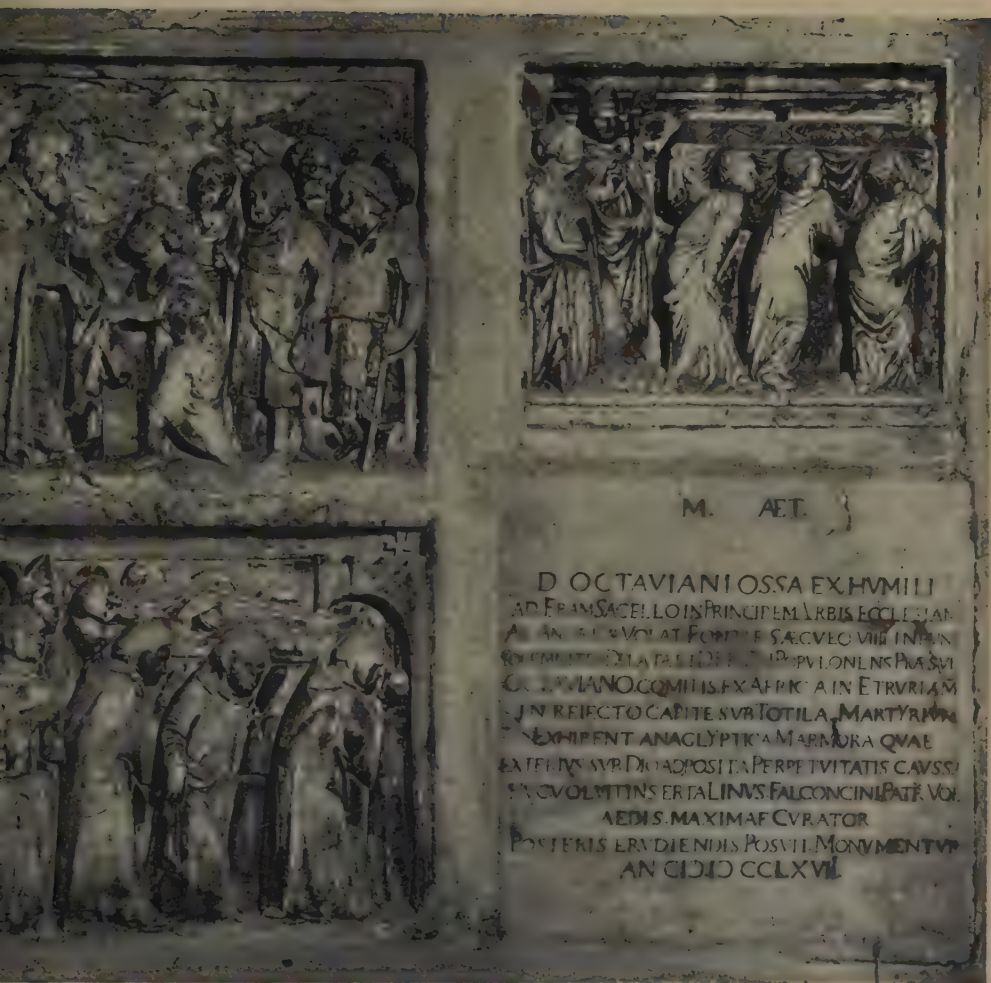 M. AET.
D OCTAVIANI OSSA EX HVMILI
AD ERAM SACELLO IN PRINCIPEM VRBIS ECCLESIAM
VOLAT SÆCVLO VIIII
POPVLONENS PRÆSVL
OCTAVIANO COMITIS EX AFRICA IN ETRVRIAM
REIECTO CAPITE SVB TOTILA MARTYRIVM
EXHIBENT ANAGLYPTICA MARMORA QVAE
EXTERIVS SVB DIO ADPOSITA PERPETVITATIS CAVSSA
LINVS FALCONCINI PATR. VOL.
AEDIS. MAXIMAE CVRATOR
POSTERIS ERVDIENDIS POSVIT MONVMENTVM
AN CIƆIƆ CCLXVII.